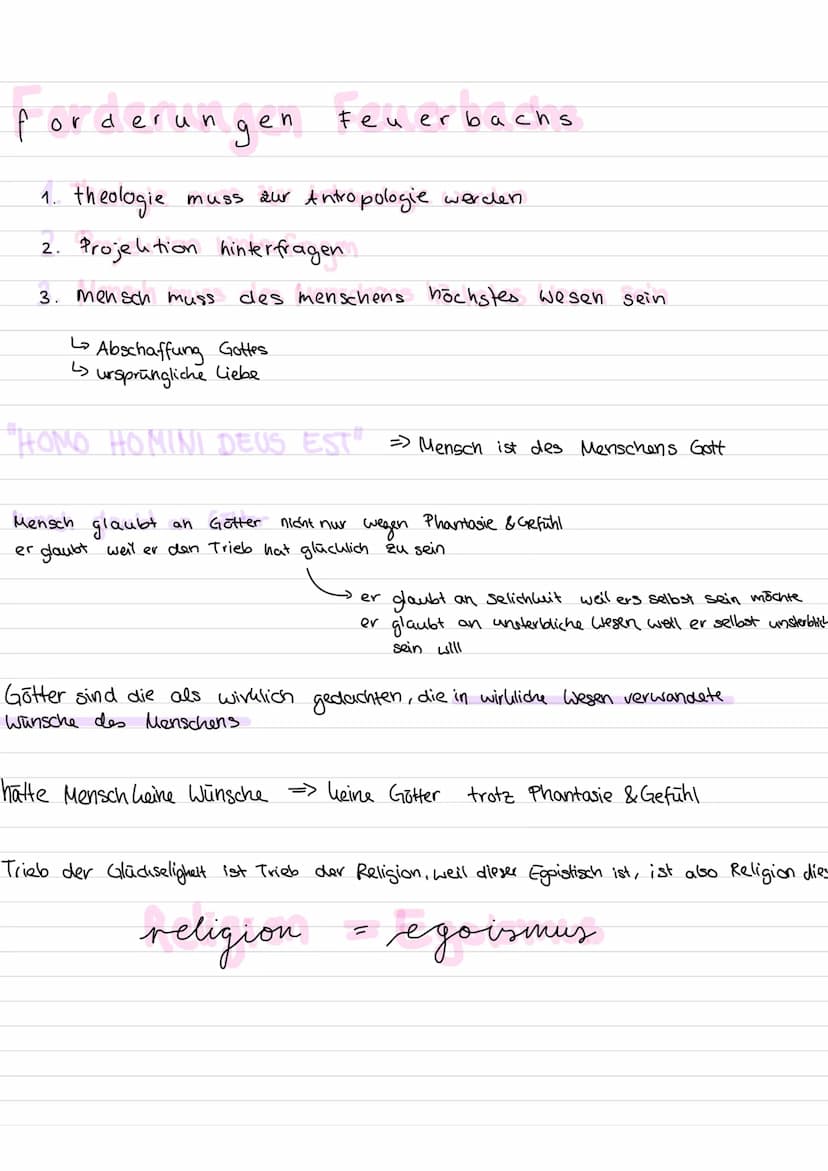 Forderungen Feuerbachs
1. Theologie muss zur Antropologie werden
2. Projektion hinterfragen
3. Mensch muss des Menschens höchstes Wesen sein
↳ Abschaffung Gottes
↳ ursprüngliche Liebe
"HOMO HOMINI DEUS EST" => Mensch ist des Menschens Gott
Mensch glaubt an Götter nicht nur wegen Phantasie & Gefühl
er glaubt weil er den Trieb hat glücklich zu sein
er glaubt an Selichkeit weil ers selbst sein möchte
er glaubt an unsterbliche Wesen weil er selbst unsterblich
sein will
Götter sind die als wirklich gedachten, die in wirkliche Wesen verwandete
Wünsche des Menschens
hätte Mensch keine Wünsche => keine Götter trotz Phantasie & Gefühl
Trieb der Glückseligkeit ist Trieb der Religion, weil dieser Egoistisch ist, ist also Religion dies
religion = egoismus